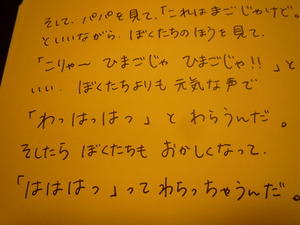 そして、パパを見て、「これはまごじゃけど。
といいながら、ぼくたちのほうを見て、
「こりゃ〜 ひまごじゃ ひまごじゃ!!」と
いい、ぼくたちよりも 元気な声で
「わっはっはっ」と わらうんだ。
そしたら ぼくたちも おかしくなって、
「はははっ」って わらっちゃうんだ。